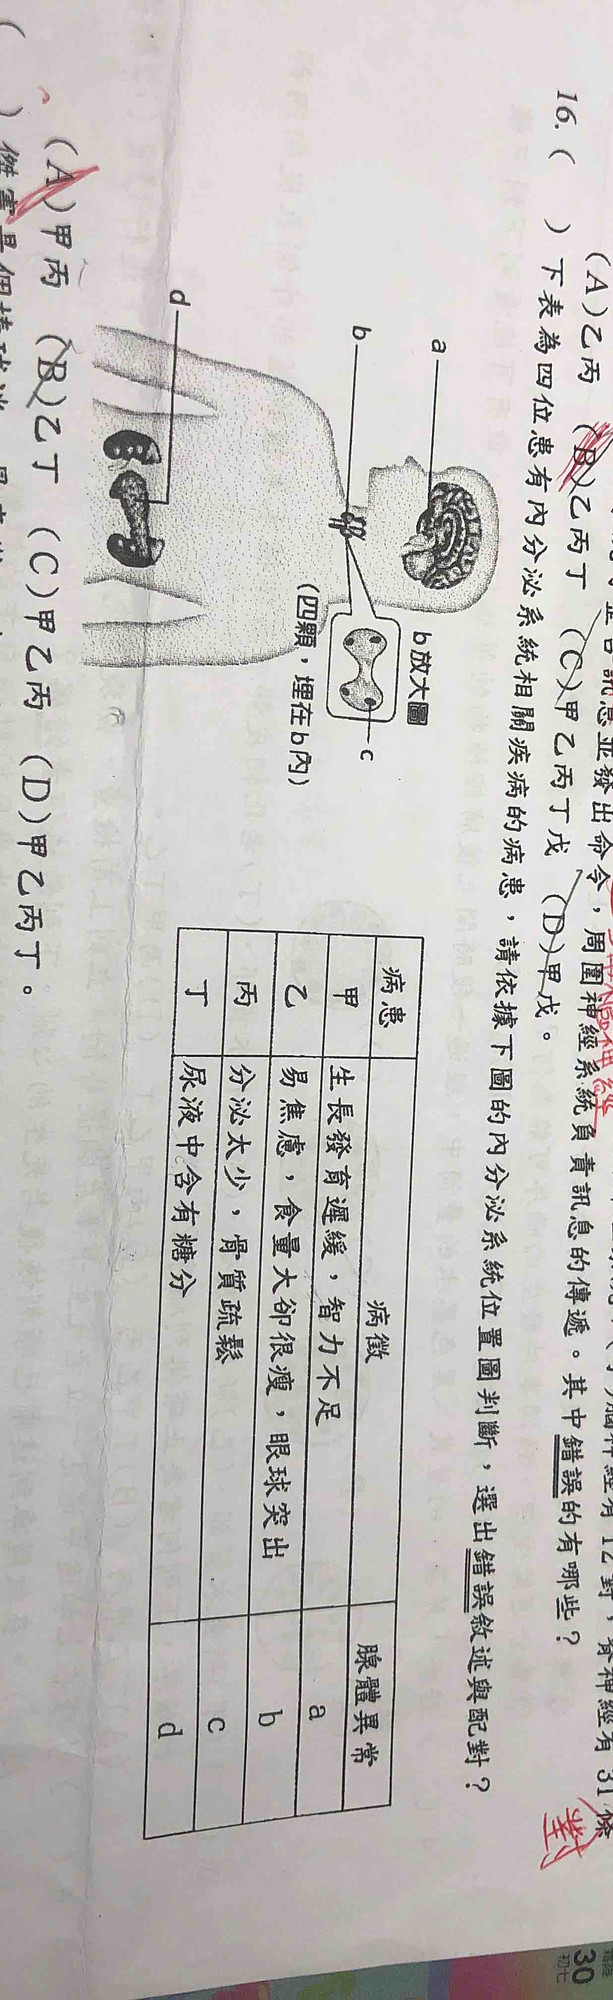 整合訊息並發出命令，周圍神經系統負責訊息的傳遞。其中錯誤的有哪些？
(A)乙丙 (B)乙丙丁 (C)甲乙丙丁戊 (D)甲戊。
對
16. ( ) 下表為四位患有內分泌系統相關疾病的病患，請依據下圖的內分泌系統位置圖判斷，選出錯誤敘述與配對？
a
b
d
b放大圖
c
(四顆，埋在b內)
病患 病徵 腺體異常
甲 生長發育遲緩，智力不足 a
乙 易焦慮，食量大卻很瘦，眼球突出 b
丙 分泌太少，骨質疏鬆 c
丁 尿液中含有糖分 d
(A)甲丙 (B)乙丁 (C)甲乙丙 (D)甲乙丙丁。
30
初七